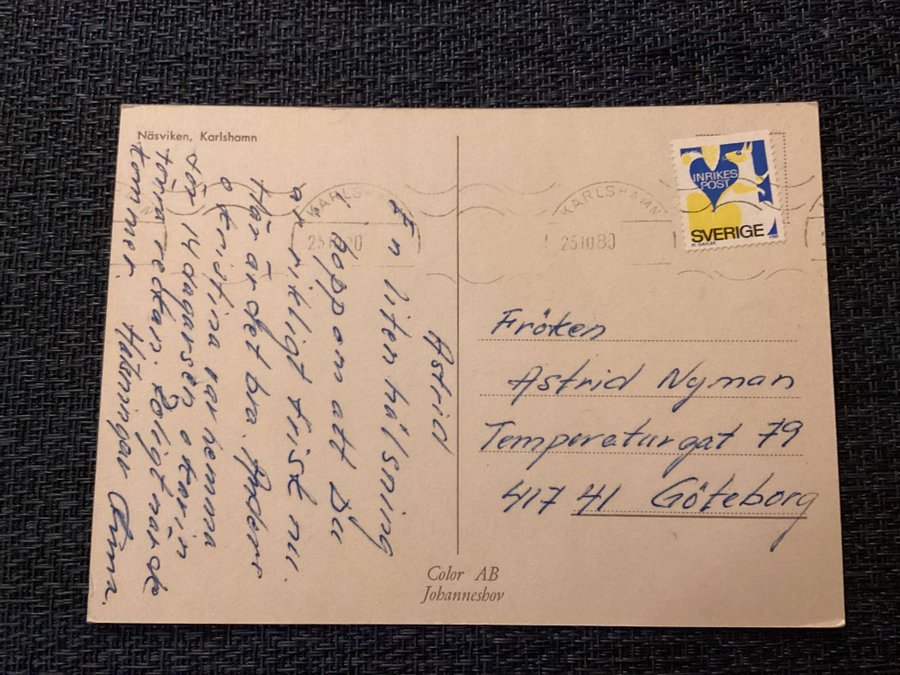 Näsviken, Karlshamn
Astrid
En liten hälsning
i hoppom att Du
är riktigt frisk nu.
Här är det bra. Anders
o Kristina var hemma
för 14 dagar sen o Karin
förra veckan. Roligt när de
kommer. Hälsningar
KARLSHAMN
25.10.80
KARLSHAMN
25.10.80
INRIKES
POST
SVERIGE
Fröken
Astrid Nyman
Temperaturgat 79
417 41 Göteborg
Color AB
Johanneshov